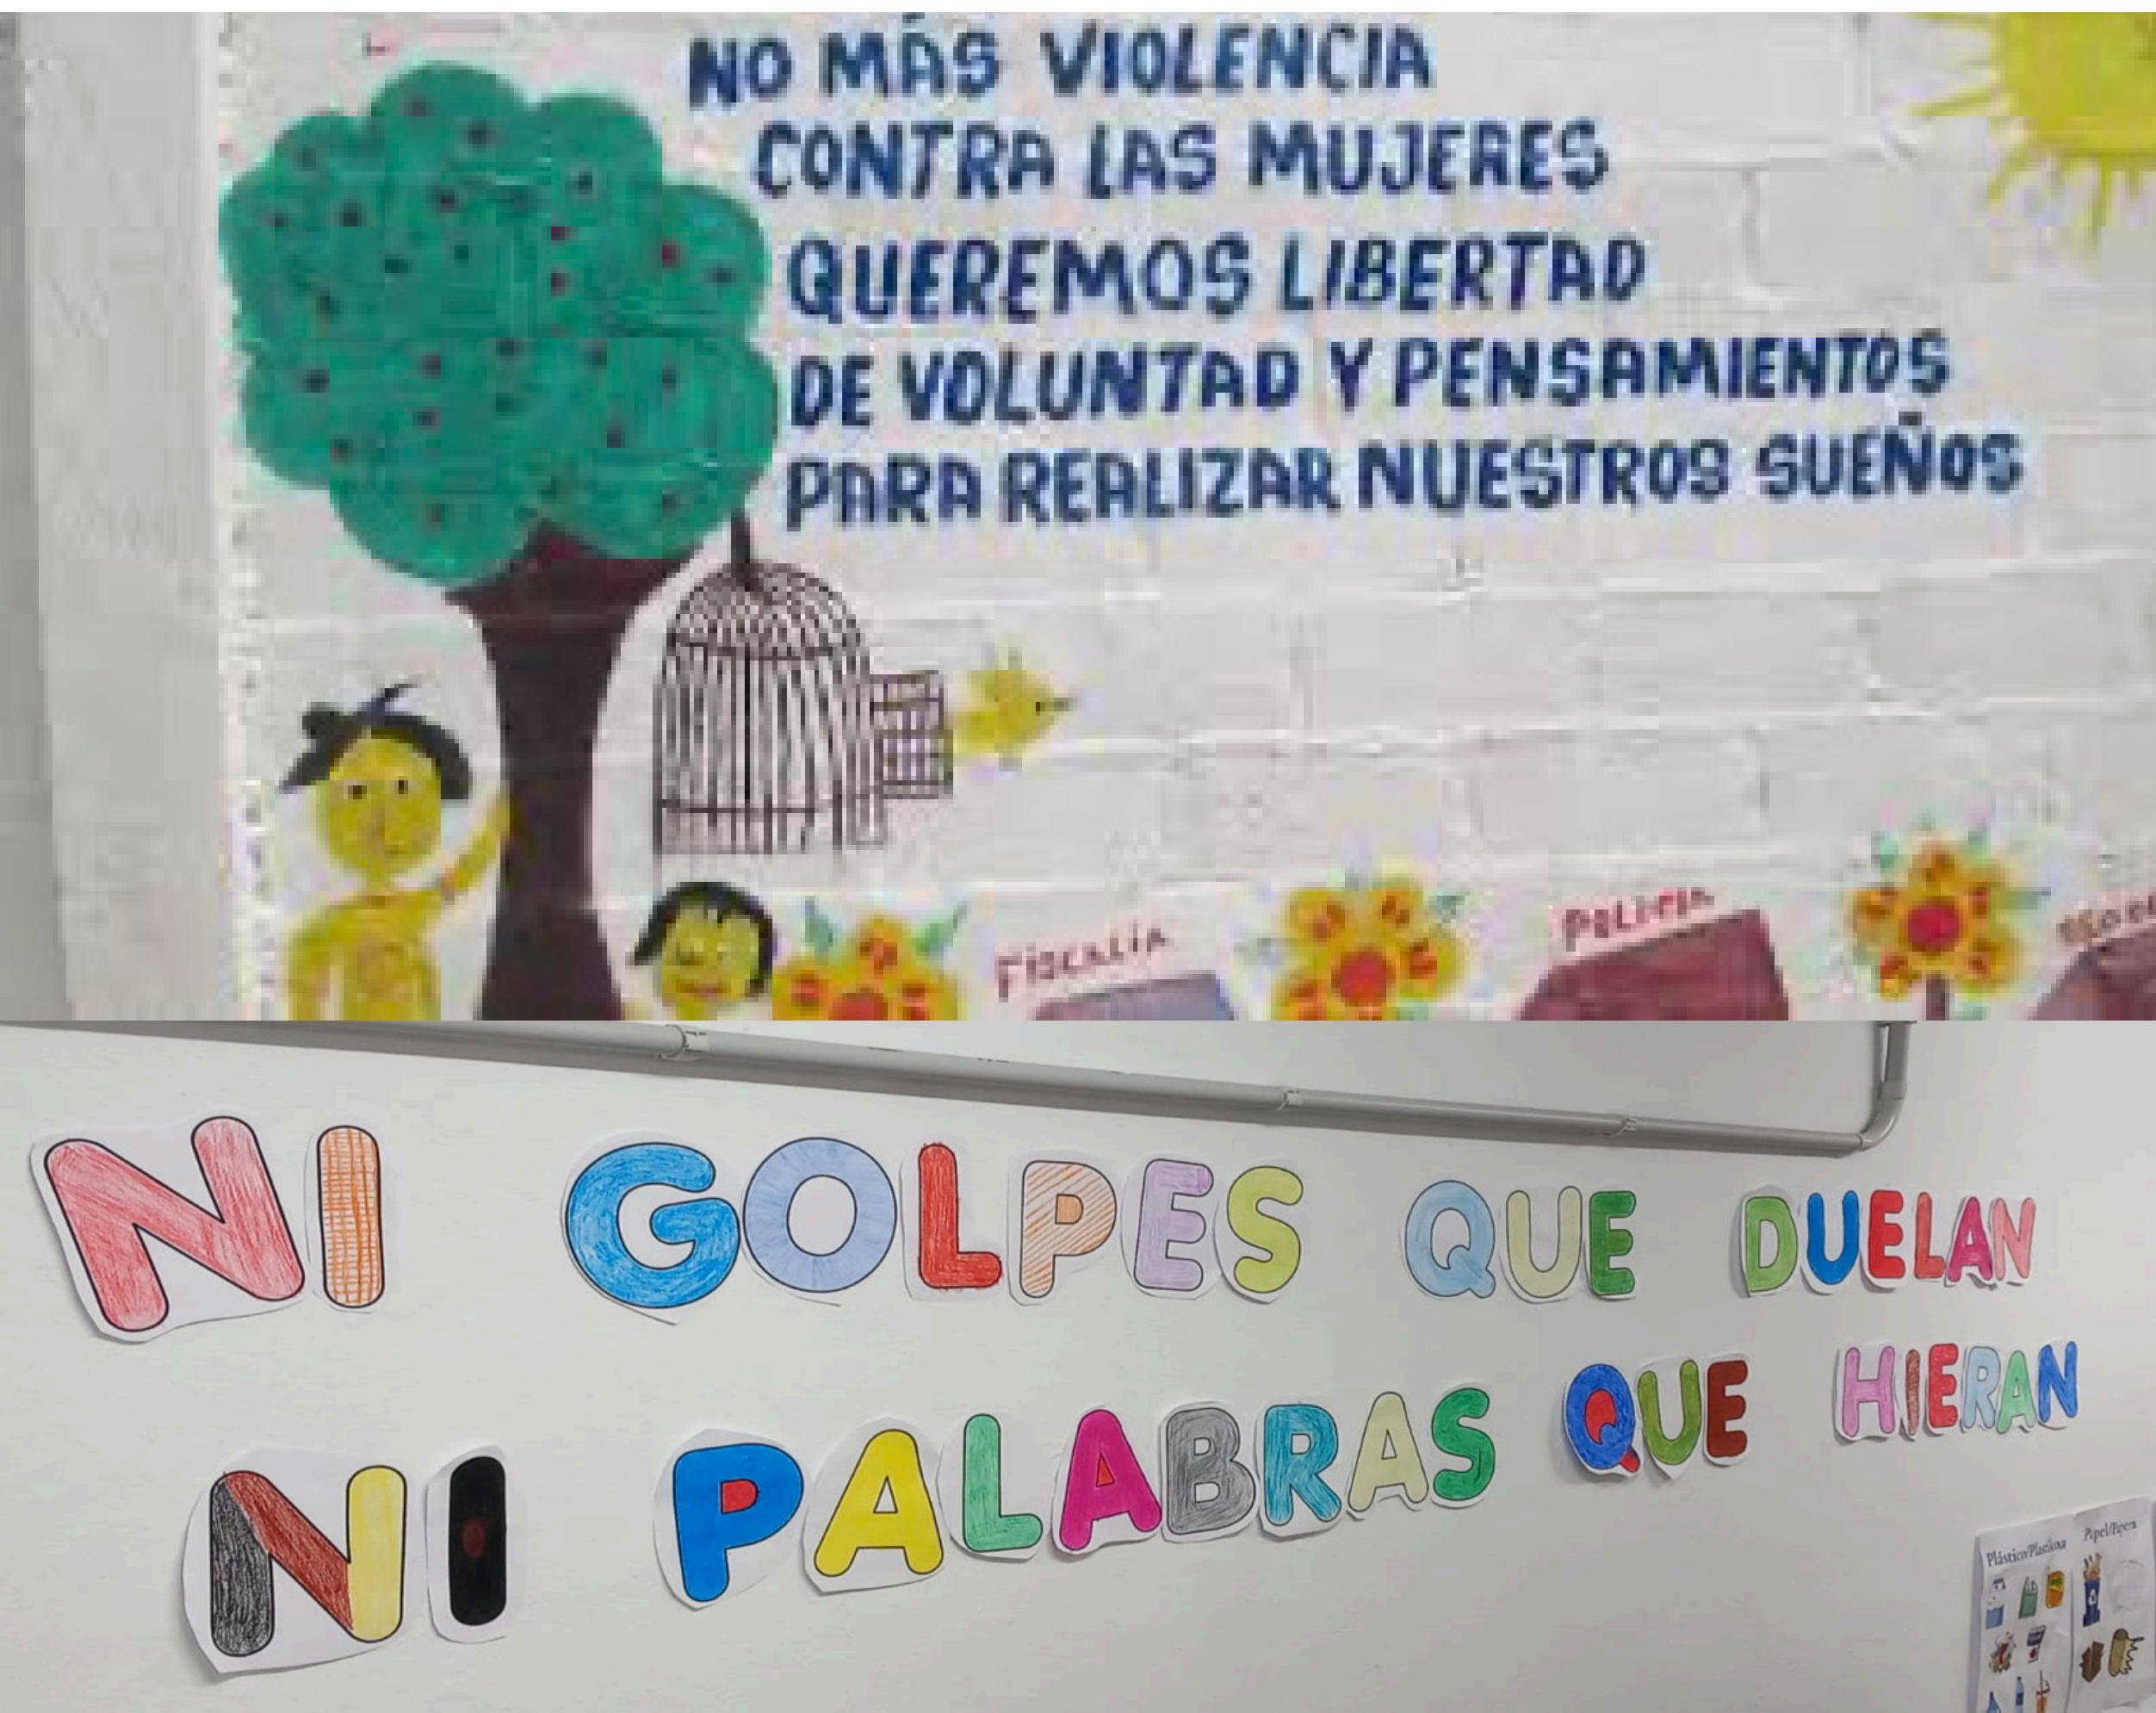 NO MÁS VIOLENCIA
CONTRA LAS MUJERES
QUEREMOS LIBERTAD
DE VOLUNTAD Y PENSAMIENTOS
PARA REALIZAR NUESTROS SUEÑOS
FISCALÍA
POLICIA
NI GOLPES QUE DUELAN
NI PALABRAS QUE HIERAN
Plástico/Plastikoa
Papel/Papera